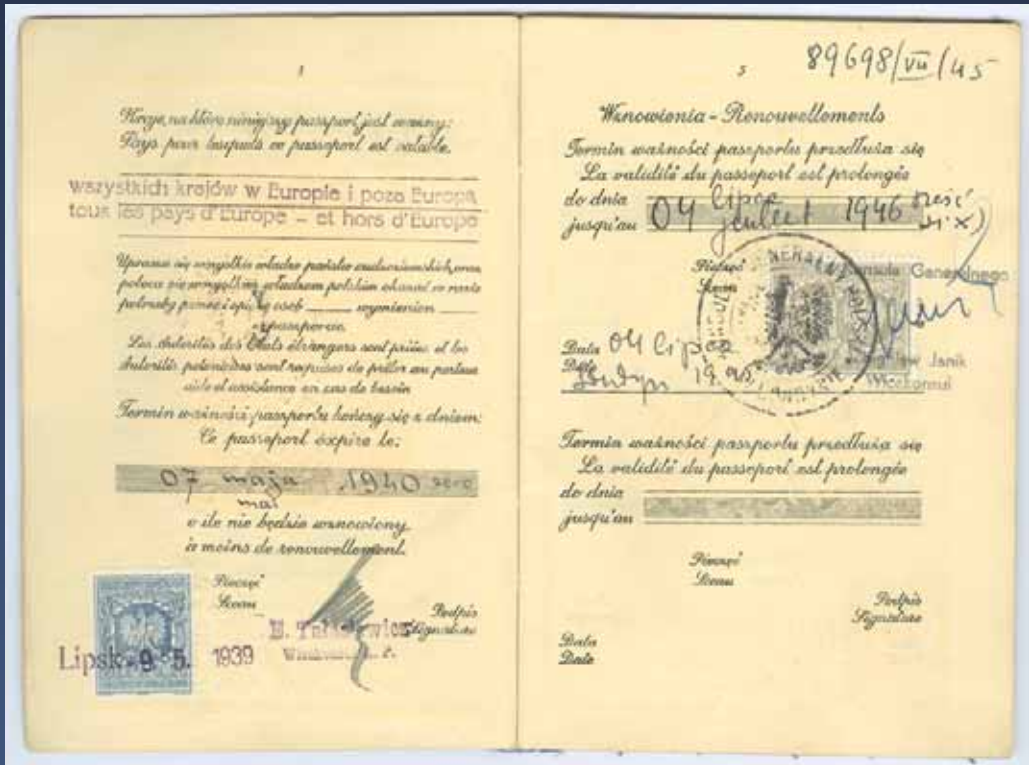 Kraje, na które niniejszy paszport jest ważny:
Pays pour lesquels ce passeport est valable.
wszystkich krajów w Europie i poza Europą
tous les pays d'Europe – et hors d'Europe
Uprasza się wszystkie władze państw cudzoziemskich, oraz
poleca się wszystkim władzom polskim okazać w razie
potrzeby pomoc i opiekę osob ____ wymienion ____
w paszporcie.
Les Autorités des États étrangers sont priées et les
Autorités polonaises sont requises de prêter au porteur
aide et assistance en cas de besoin
Termin ważności paszportu kończy się z dniem:
Ce passeport expire le:
07 maja 1940 zero
mai
o ile nie będzie wznowiony.
à moins de renouvellement.
Pieczęć
Sceau
Podpis
Signature
Lipsk 9. 5. 1939
5
89698/VII/45
Wznowienia – Renouvellements
Termin ważności paszportu przedłuża się
La validité du passeport est prolongée
do dnia
jusqu'au
04 lipca 1946 sześć
juillet six)
Pieczęć
Sceau
Konsula Generalnego
KONSULAT GENERALNY
Data 04 lipca
Date
Londyn 1945
Janik
Wicekonsul
Termin ważności paszportu przedłuża się
La validité du passeport est prolongée
do dnia
jusqu'au
Pieczęć
Sceau
Podpis
Signature
Data
Date